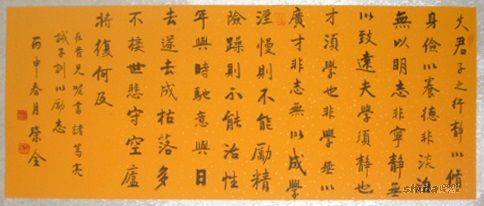 夫君子之行靜以脩
身儉以養德非淡泊
無以明志非寧靜無
以致遠夫學須靜也
才須學也非學無以
廣才非志無以成學
淫慢則不能勵精
險躁則不能治性
年與時馳意與日
去遂去成枯落多
不接世悲守空廬
將復何及
兄 書諸葛亮
誡子訓以勵志
丙申春月榮全